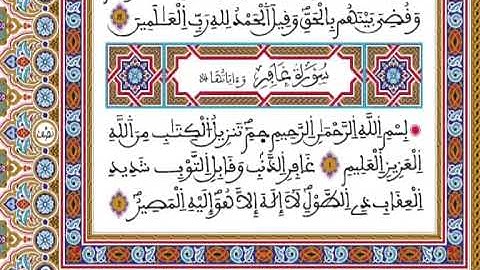 وَقُضِيَ بَيْنَهُم بِالْحَقِّ وَقِيلَ الْحَمْدُ لِلهِ رَبِّ الْعَٰلَمِينَ
سُورَةُ غَافِرٍ وَءَايَاتُهَا
بِسْمِ اللَّهِ الرَّحْمَٰنِ الرَّحِيمِ حمٓ تَنزِيلُ الْكِتَٰبِ مِنَ اللَّهِ
الْعَزِيزِ الْعَلِيمِ ١ غَافِرِ الذَّنۢبِ وَقَابِلِ التَّوْبِ شَدِيدِ
الْعِقَابِ ذِے الطَّوْلِ لَآ إِلَٰهَ إِلَّا هُوَ إِلَيْهِ الْمَصِيرُ ٢